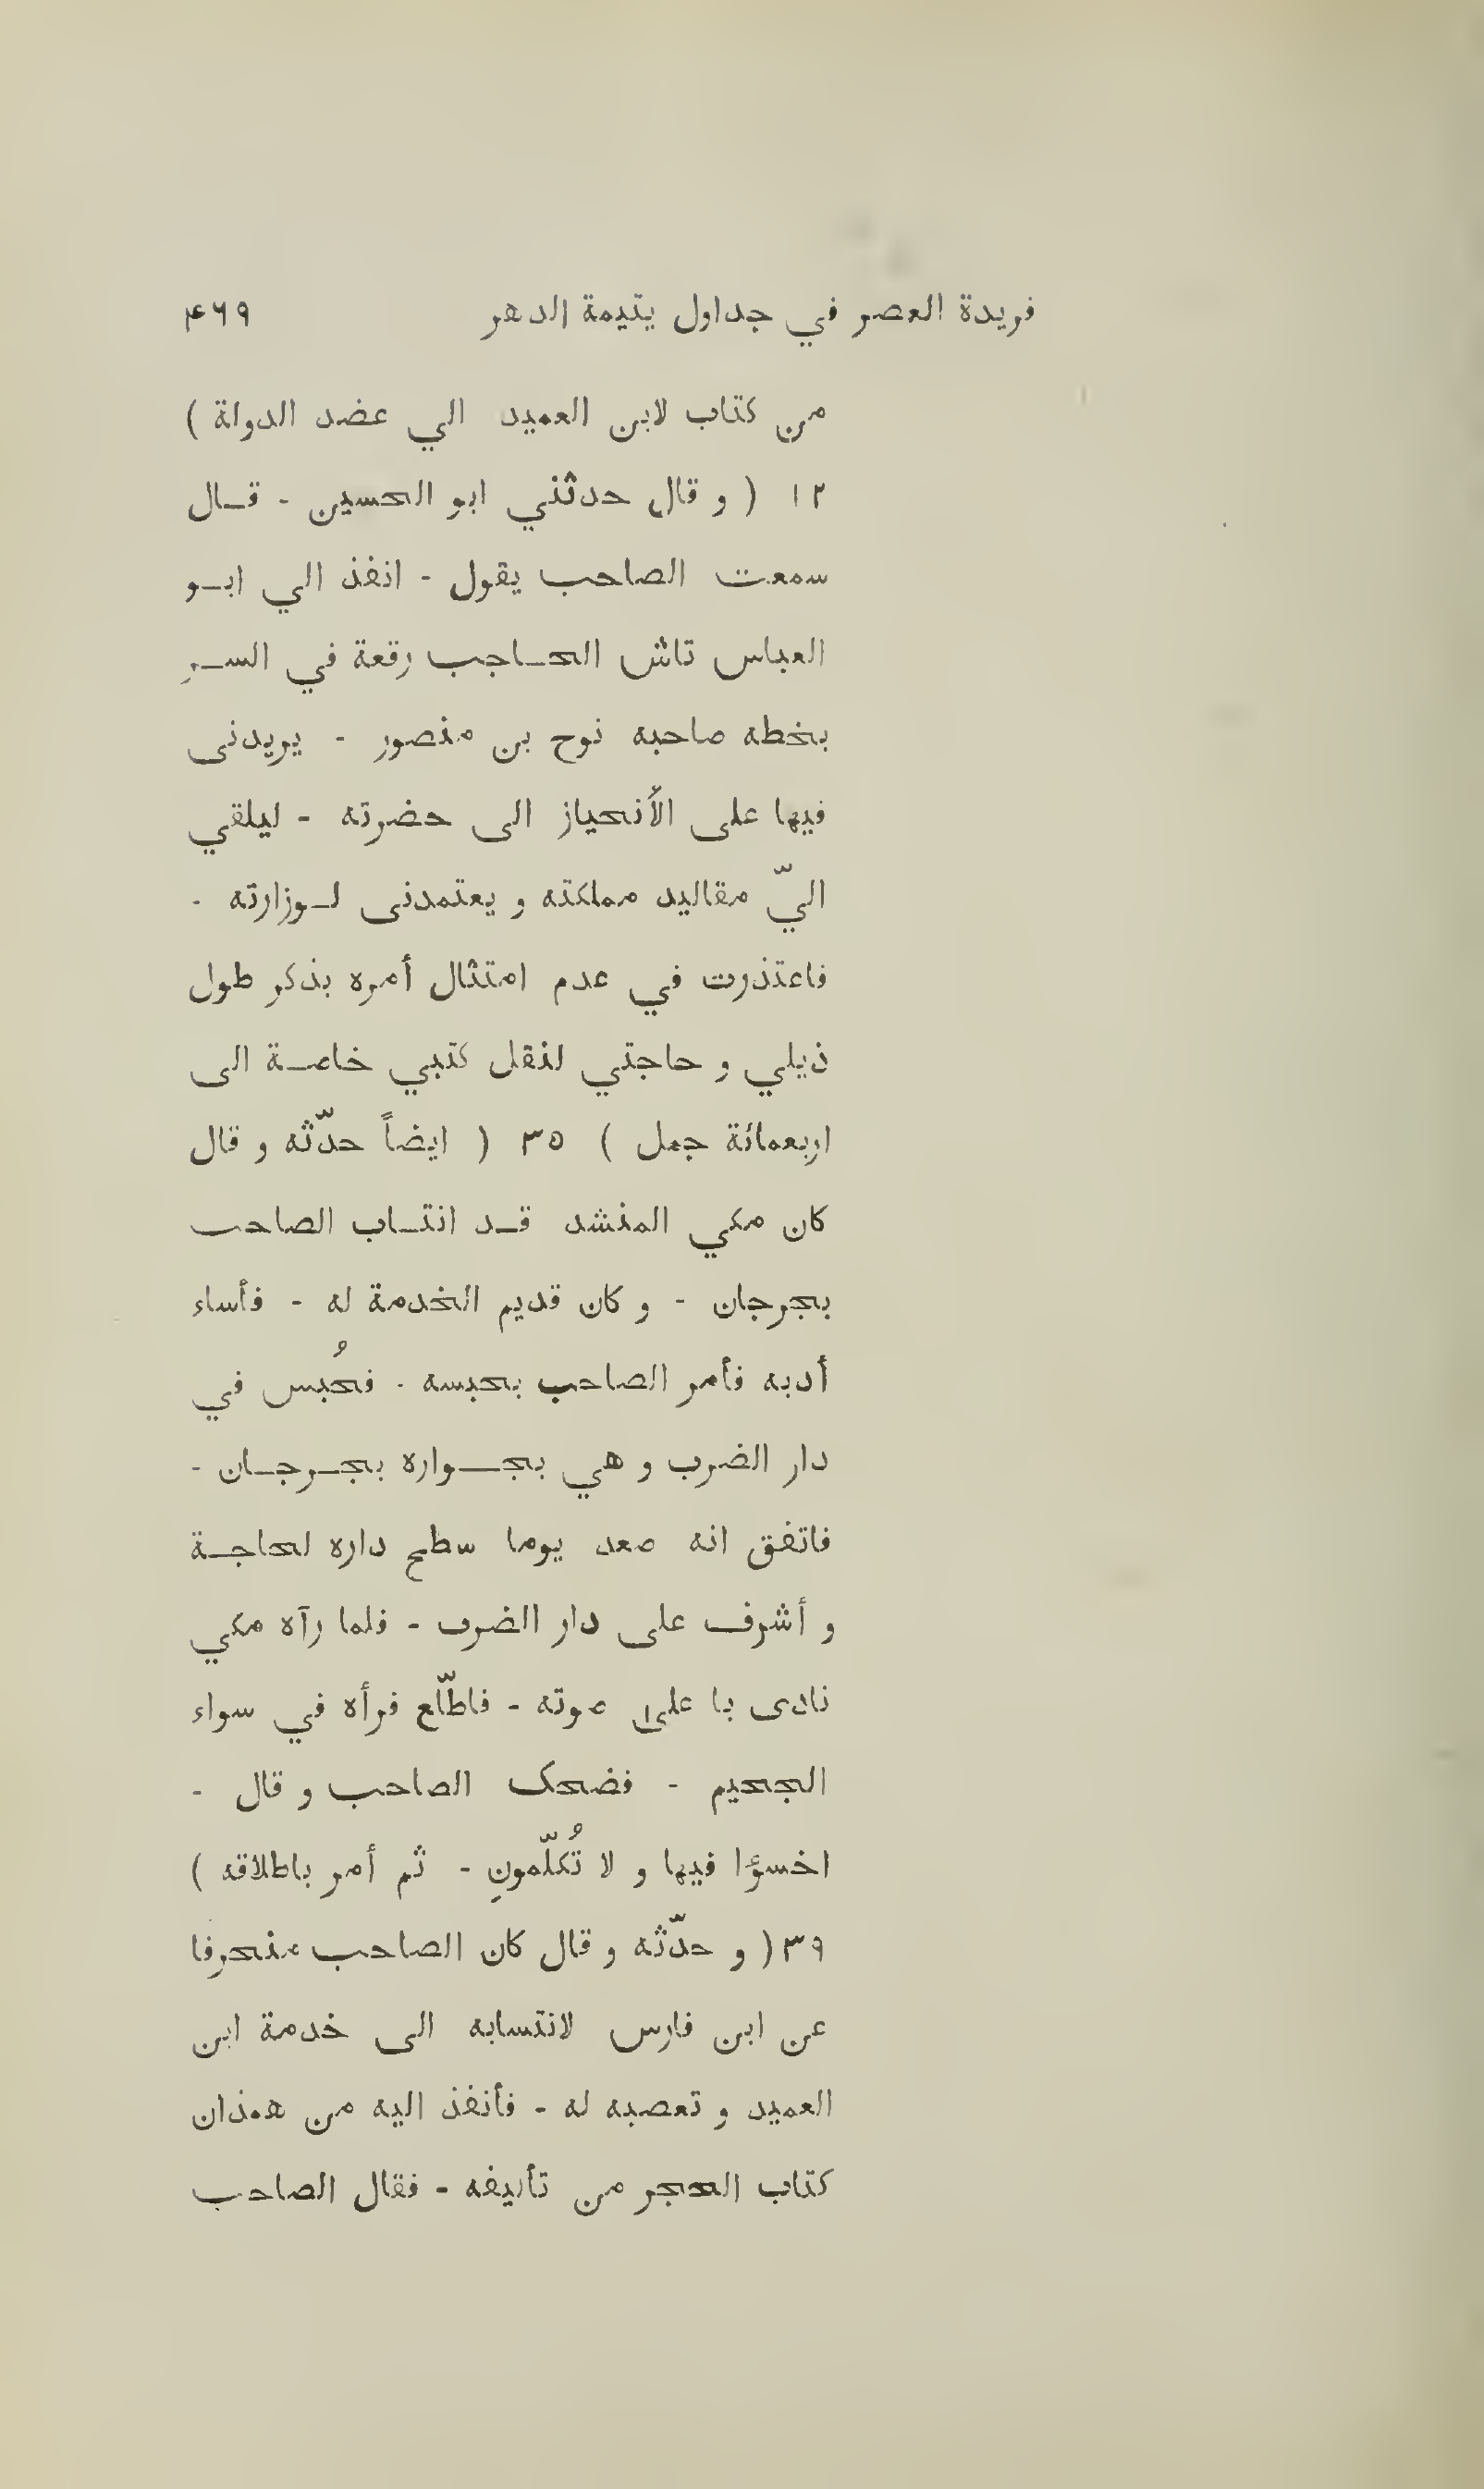 فريدة العصر في جداول يتيمة الدهر ۴۶۹
من كتاب لابن العميد الي عضد الدولة )
۱۲ ( و قال حدثني ابو الحسين - قــال
سمعت الصاحب يقول - انفذ الي ابــو
العباس تاش الحــاجب رقعة في الســر
بخطه صاحبه نوح بن منصور - يريدنى
فيها على الأنحياز الى حضرته - ليلقي
اليّ مقاليد مملكته و يعتمدنى لــوزارته -
فاعتذرت في عدم امتثال أمره بذكر طول
ذيلي و حاجتي لنقل كتبي خاصــة الى
اربعمائة جمل ) ۳۵ ( ايضاً حدّثه و قال
كان مكي المنشد قــد انتــاب الصاحب
بجرجان - و كان قديم الخدمة له - فأساء
أدبه فأمر الصاحب بحبسه - فحُبس في
دار الضرب و هي بجــواره بجــرجــان -
فاتفق انه صعد يوما سطح داره لحاجــة
و أشرف على دار الضرب - فلما رآه مكي
نادى با علىٰ صوته - فاطّلع فرأه في سواء
الجحيم - فضحک الصاحب و قال -
اخسؤا فيها و لا تُكلّمونِ - ثم أمر باطلاقه )
۳۹ ( و حدّثه و قال كان الصاحب منحرفا
عن ابن فارس لانتسابه الى خدمة ابن
العميد و تعصبه له - فأنفذ اليه من همذان
كتاب الحجر من تأليفه - فقال الصاحب